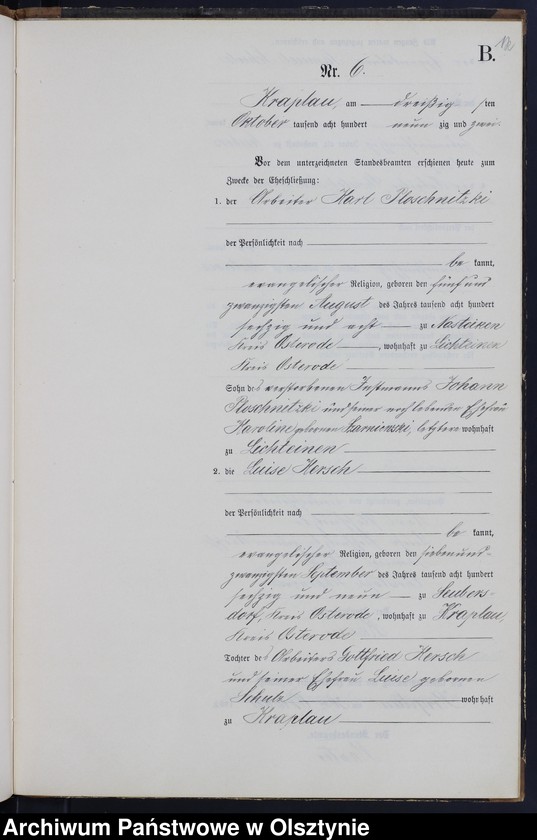 B.
Nr. 6.
Kraplau, am dreißig ten
Oktober tausend acht hundert neun zig und zwei
Vor dem unterzeichneten Standesbeamten erschienen heute zum
Zwecke der Eheschließung:
1. der Arbeiter Karl Ploschnitzki
der Persönlichkeit nach
be kannt,
evangelischer Religion, geboren den fünf und
zwanzigsten August des Jahres tausend acht hundert
sechzig und acht zu Nasteinen
Kreis Osterode, wohnhaft zu Lichteinen
Kreis Osterode
Sohn des verstorbenen Instmanns Johann
Ploschnitzki und seiner noch lebenden Ehefrau
Karoline gebornen Czarnienski, letztere wohnhaft
zu Lichteinen
2. die Luise Hersch
der Persönlichkeit nach
be kannt,
evangelischer Religion, geboren den siebenund-
zwanzigsten September des Jahres tausend acht hundert
sechzig und neun zu Seubers-
dorf, Kreis Osterode, wohnhaft zu Kraplau,
Kreis Osterode
Tochter des Arbeiters Gottfried Hersch
und seiner Ehefrau Luise gebornen
Schulz wohnhaft
zu Kraplau
Archiwum Państwowe w Olsztynie